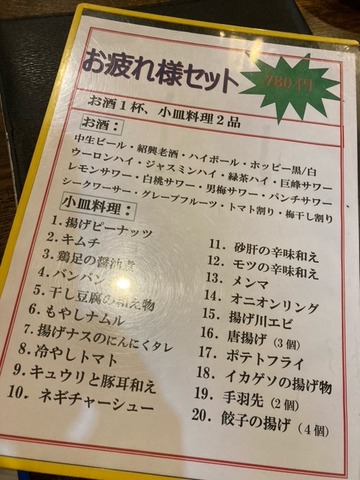 お疲れ様セット
780円
お酒1杯、小皿料理2品
お酒：
中生ビール・紹興老酒・ハイボール・ホッピー黒/白
ウーロンハイ・ジャスミンハイ・緑茶ハイ・巨峰サワー
レモンサワー・白桃サワー・男梅サワー・パンチサワー
シークワーサー・グレープフルーツ・トマト割り・梅干し割り
小皿料理：
1．揚げピーナッツ
2．キムチ
3．鶏足の醤油煮
4．バンバン
5．干し豆腐の和え物
6．もやしナムル
7．揚げナスのにんにくタレ
8．冷やしトマト
9．キュウリと豚耳和え
10．ネギチャーシュー
11．砂肝の辛味和え
12．モツの辛味和え
13．メンマ
14．オニオンリング
15．揚げ川エビ
16．唐揚げ（3個）
17．ポテトフライ
18．イカゲソの揚げ物
19．手羽先（2個）
20．餃子の揚げ（4個）